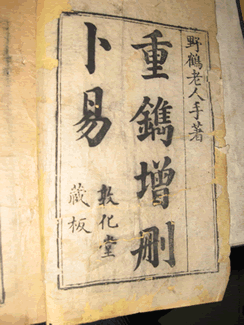 野鶴老人手著
重鐫增刪
卜易
敦化堂
藏板